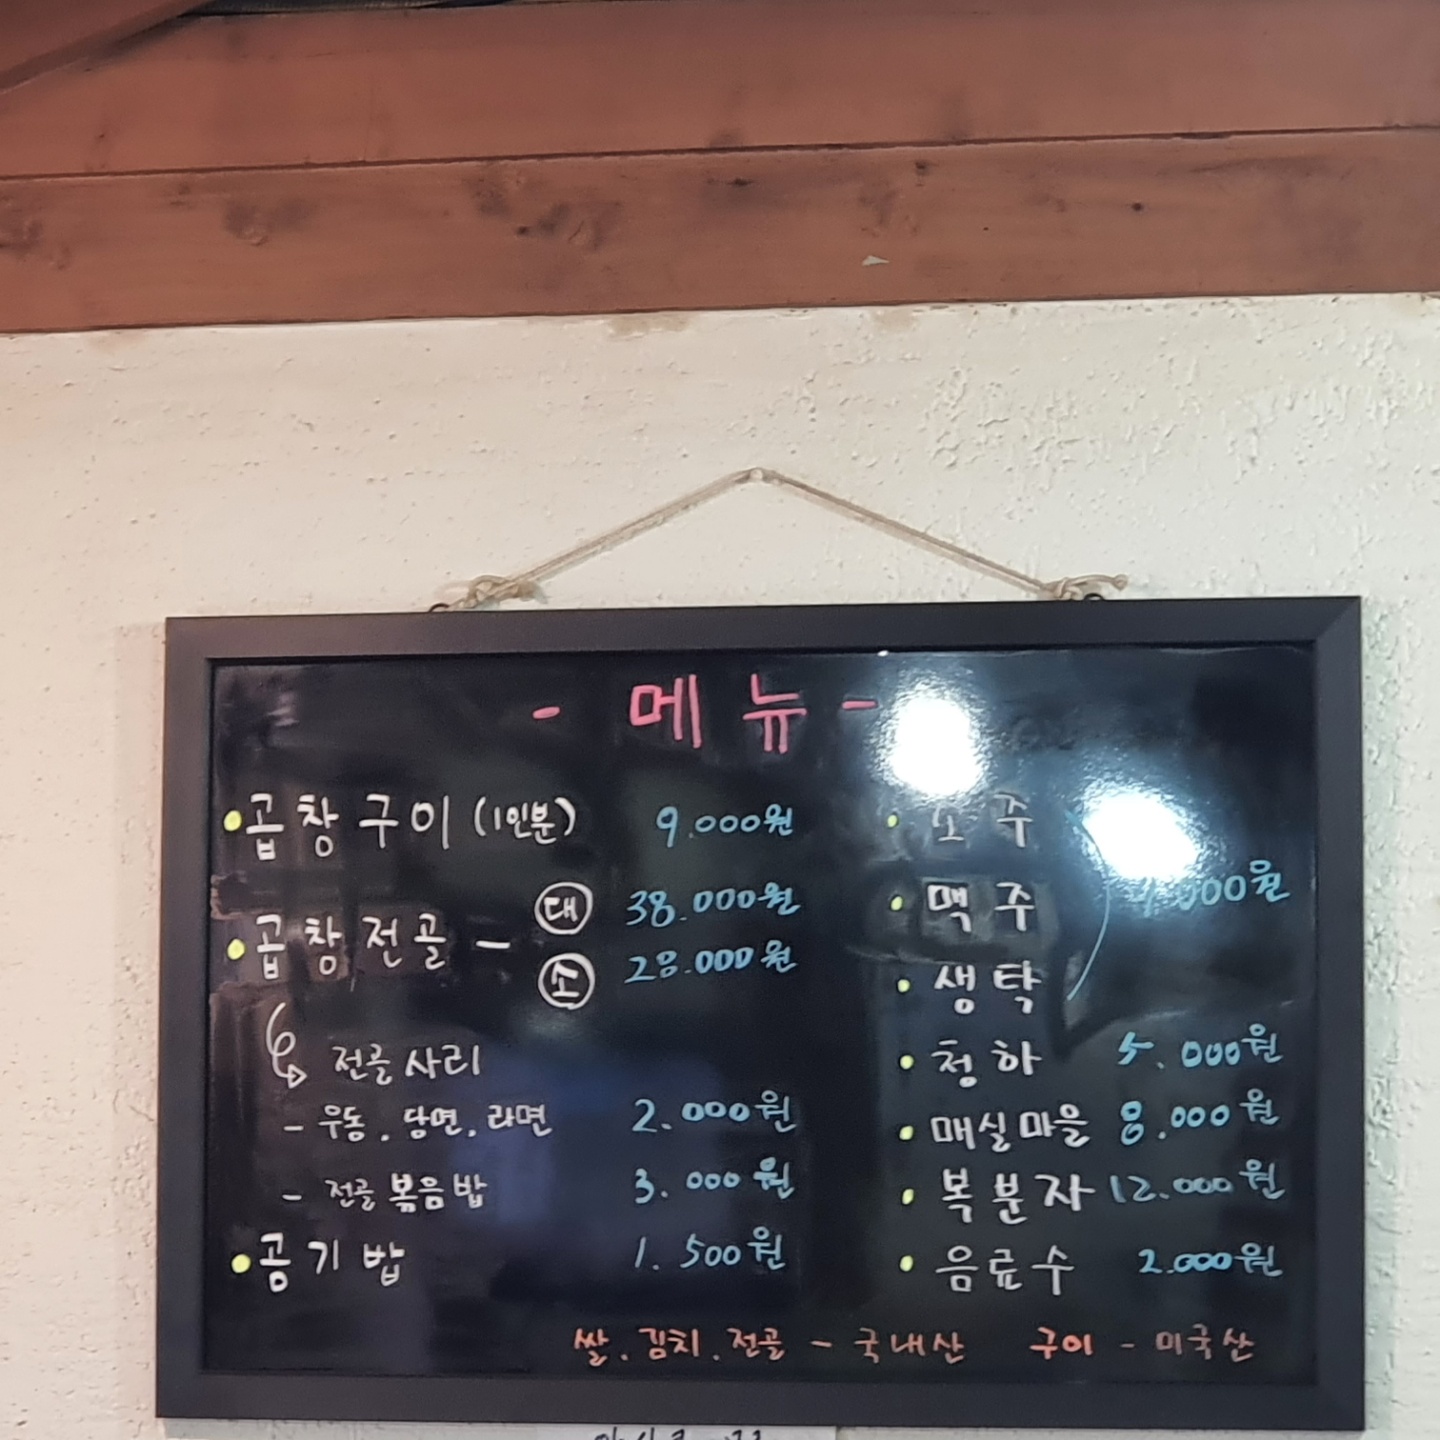 - 메뉴 -
• 곱창구이 (1인분) 9.000원
• 곱창전골 - 대 38.000원
소 28.000원
전골사리
- 우동. 당면. 라면 2.000원
- 전골볶음밥 3.000원
• 공기밥 1.500원
• 소주
• 맥주 000원
• 생탁
• 청하 5.000원
• 매실마을 8.000원
• 복분자 12.000원
• 음료수 2.000원
쌀. 김치. 전골 - 국내산 구이 - 미국산